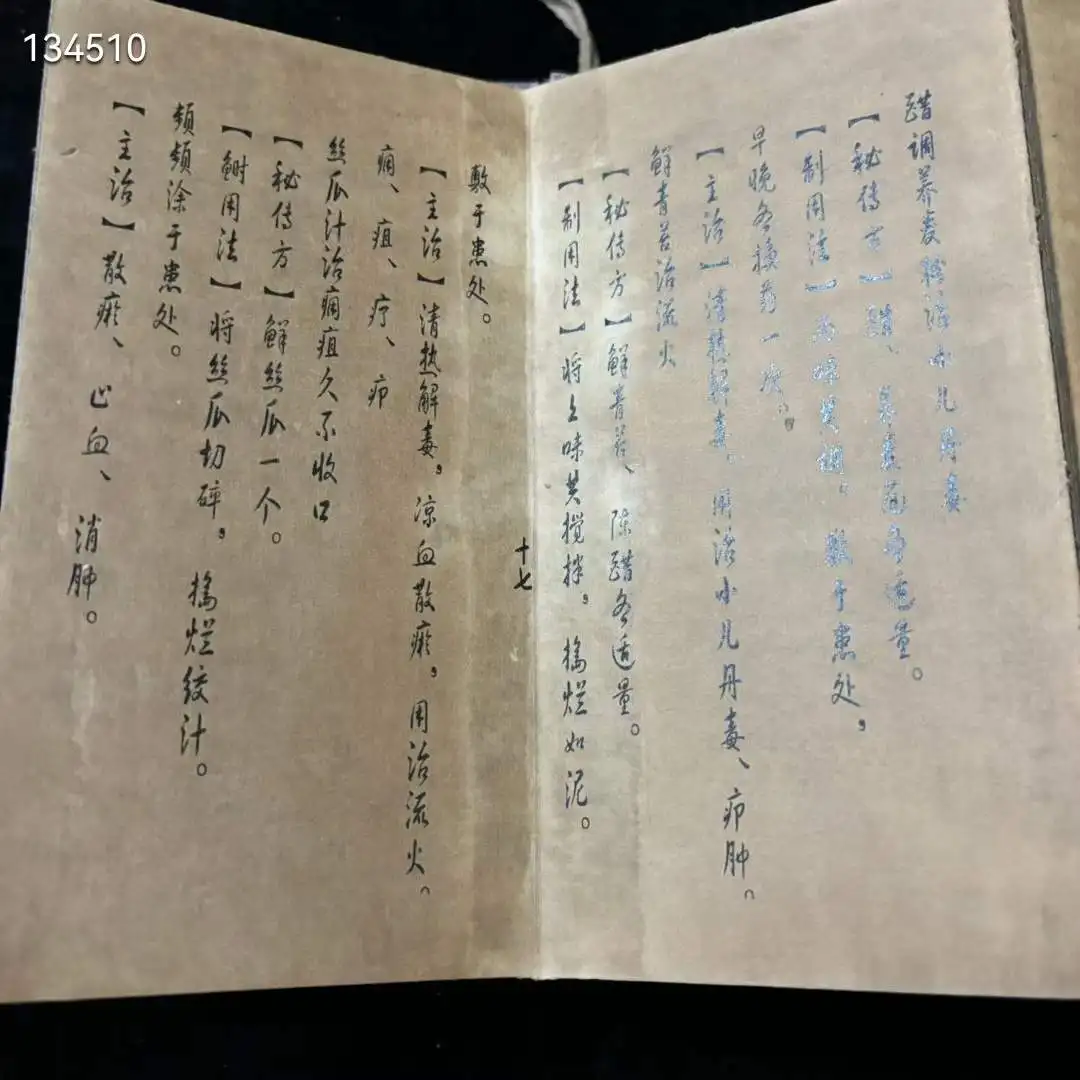 134510
醋调荞麦糊治小儿丹毒
【秘传方】醋、荞麦面各适量。
【制用法】两味共调。敷于患处,
早晚各换药一次。
【主治】清热解毒。用治小儿丹毒、疖肿。
鲜青苔治流火
【秘传方】鲜青苔、陈醋各适量。
【制用法】将上味共搅拌。捣烂如泥。
十七
敷于患处。
【主治】清热解毒。凉血散瘀。用治流火。
痈、疽、疔、疖
丝瓜汁治痈疽久不收口
【秘传方】鲜丝瓜一个。
【制用法】将丝瓜切碎。捣烂绞汁。
频频涂于患处。
【主治】散瘀、止血、消肿。